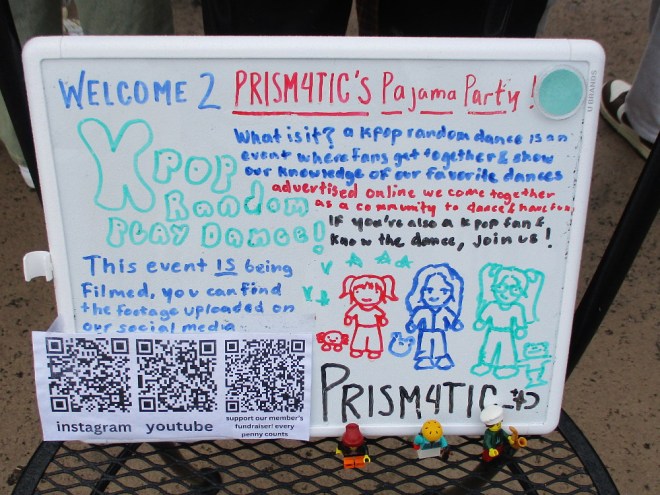 WELCOME 2 PRISM4TIC'S Pajama Party!
U BRANDS
Kpop
Random
PLAY DANCE!
What is it? a kpop random dance is an
event where fans get together & show
our knowledge of our favorite dances
advertised online we come together
as a community to dance & have fun
IF you're also a kpop fan &
know the dance, join us!
This event IS being
Filmed, you can find
the footage uploaded on
our social media
PRISM4TIC
instagram
youtube
support our member's
fundraiser! every
penny counts